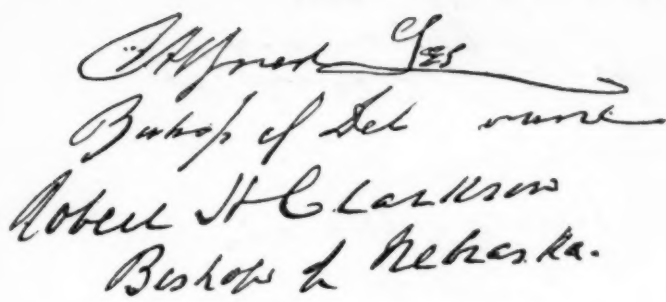 Alfred Lee
Bishop of Delaware
Robert H Clarkson
Bishop of Nebraska.